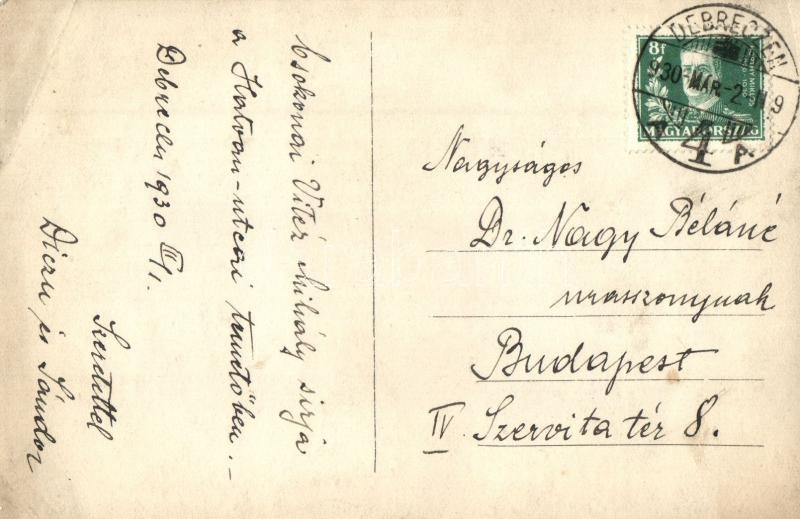 Csokonai Vitéz Mihály sirja
a Hatvan-utcai temetőben. –
Debrecen 1930 III/1.
Szeretettel
és Sándor
8f
MAGYARORSZÁG
DEBRECZEN
930 MAR -2
4
Nagyságos
Dr. Nagy Béláné
urasszonynak
Budapest
IV. Szervita tér 8.